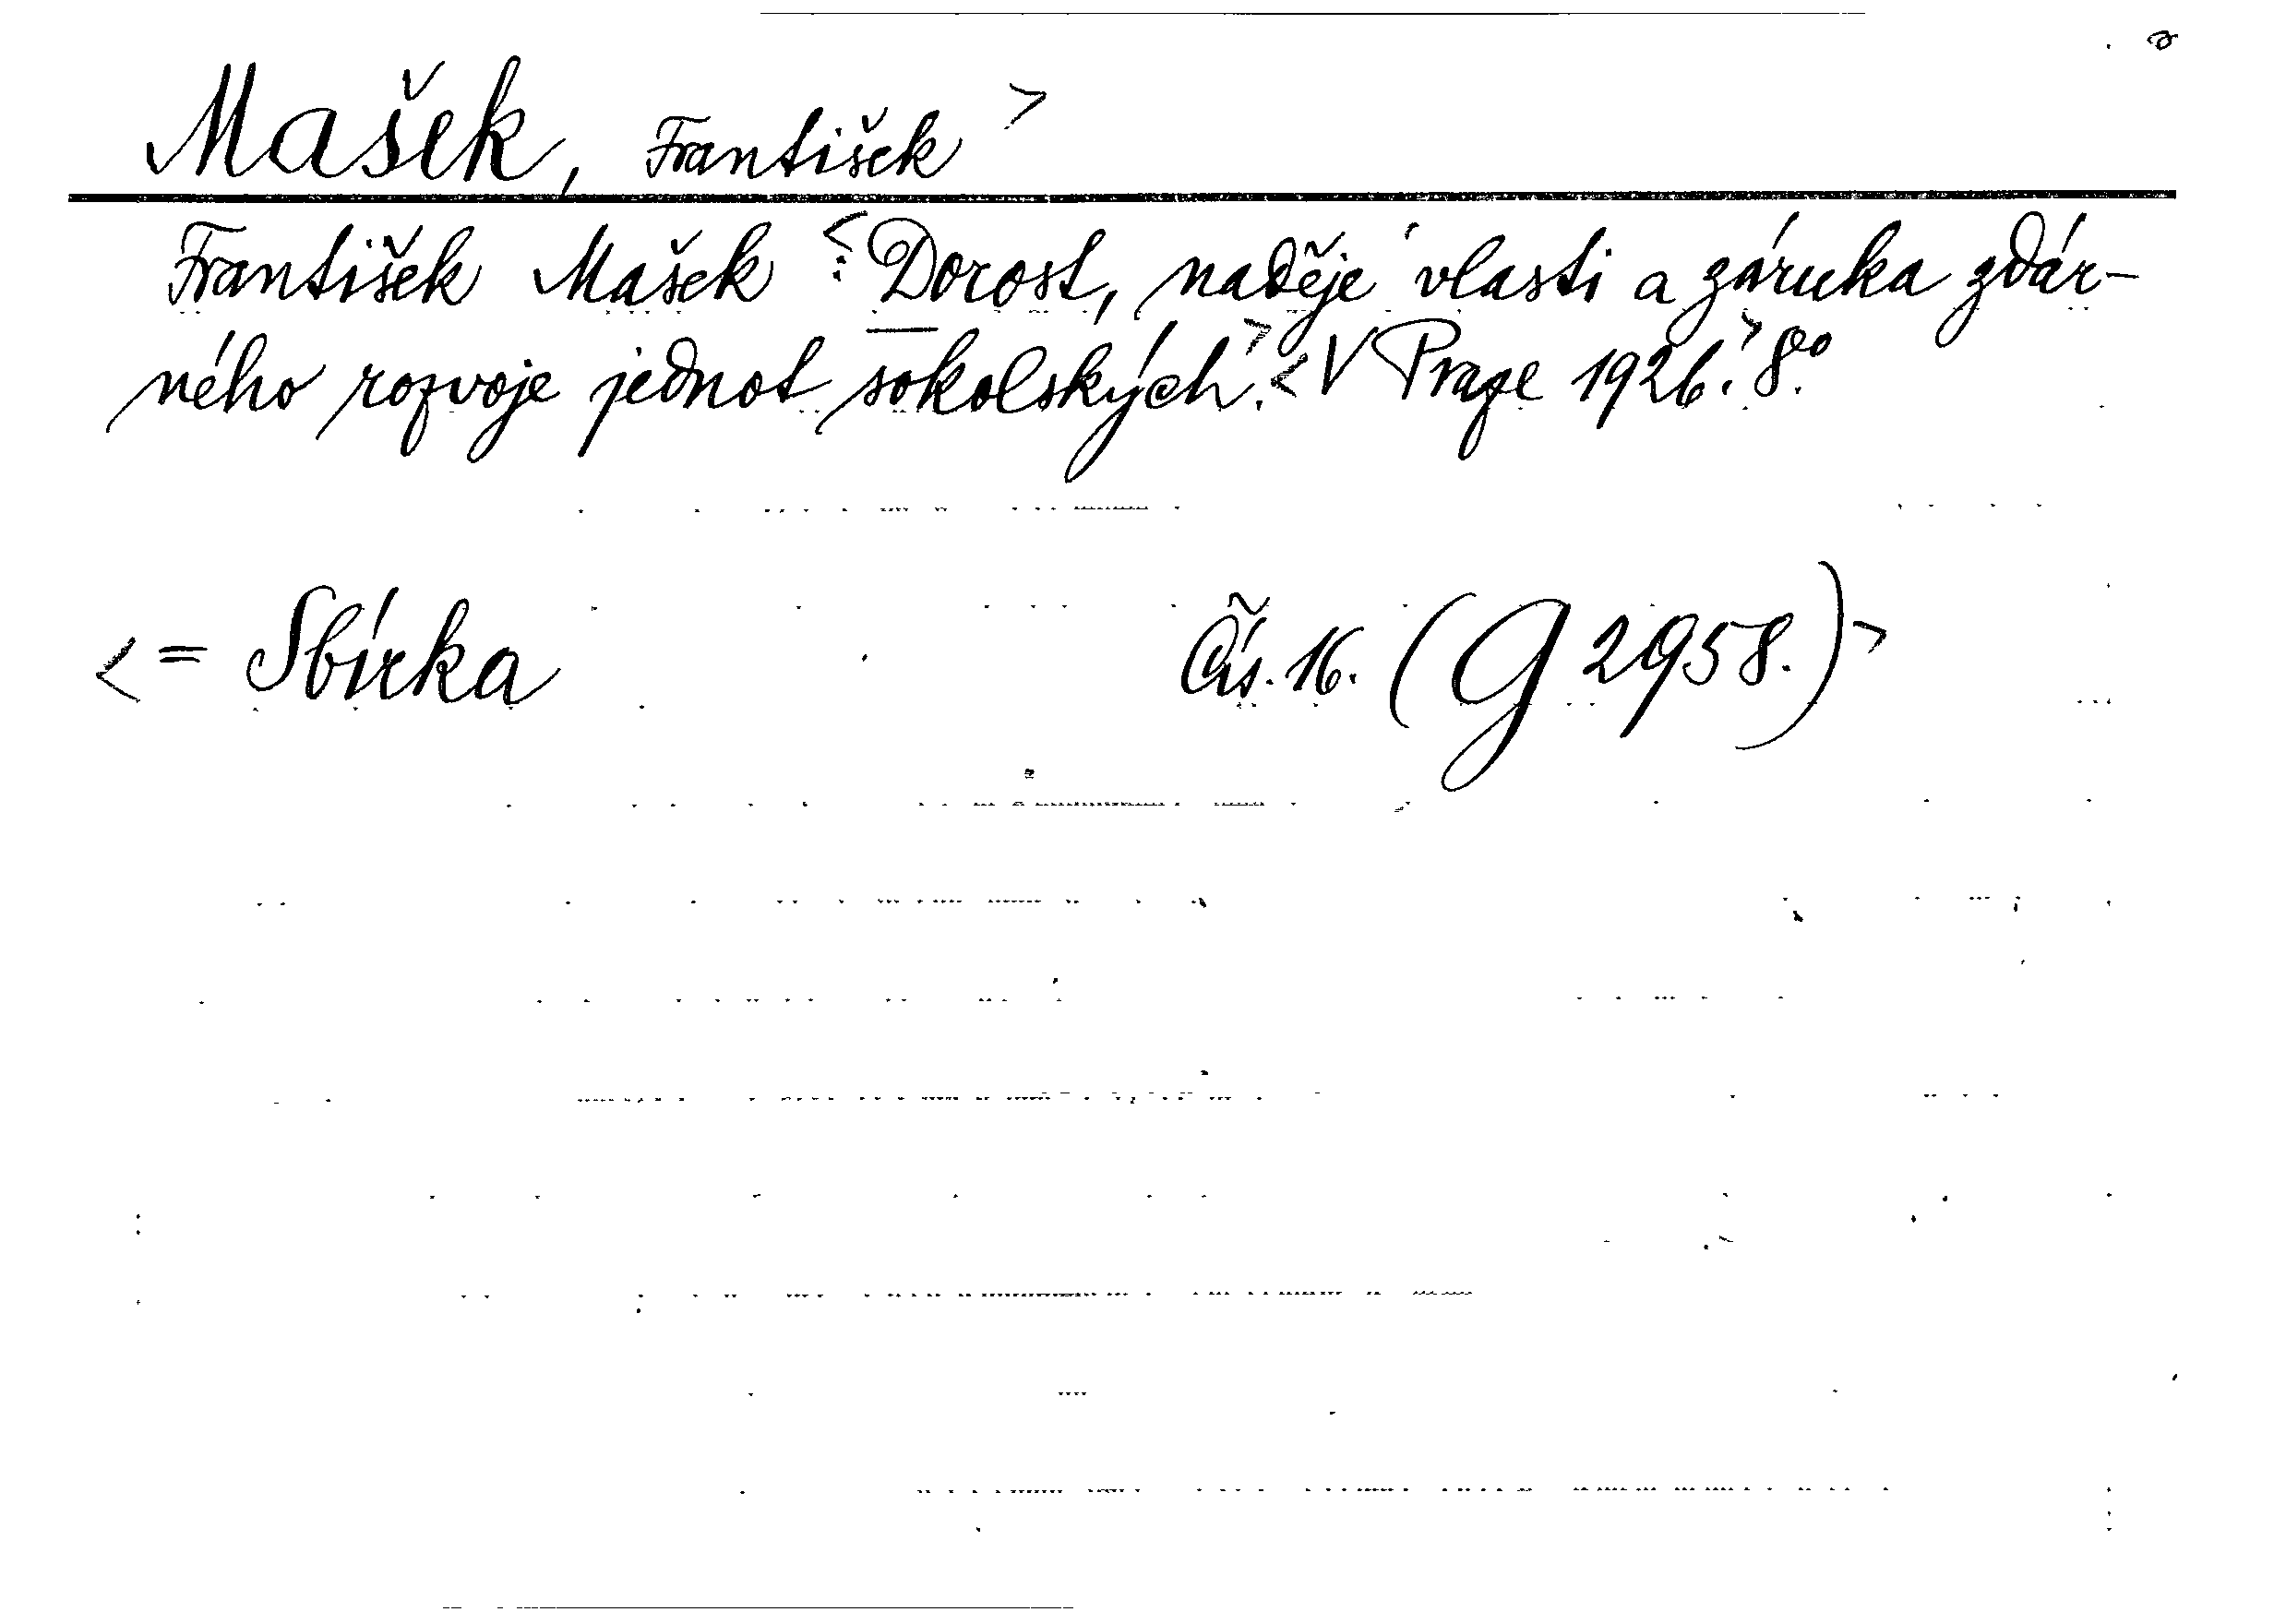 Mašek, František >
František Mašek <: Dorost, naděje vlasti a záruka zdár-
ného rozvoje jednot sokolských.> <V Praze 1926.> 8º.
<= Sbírka Čís. 16. (G 2958.)>